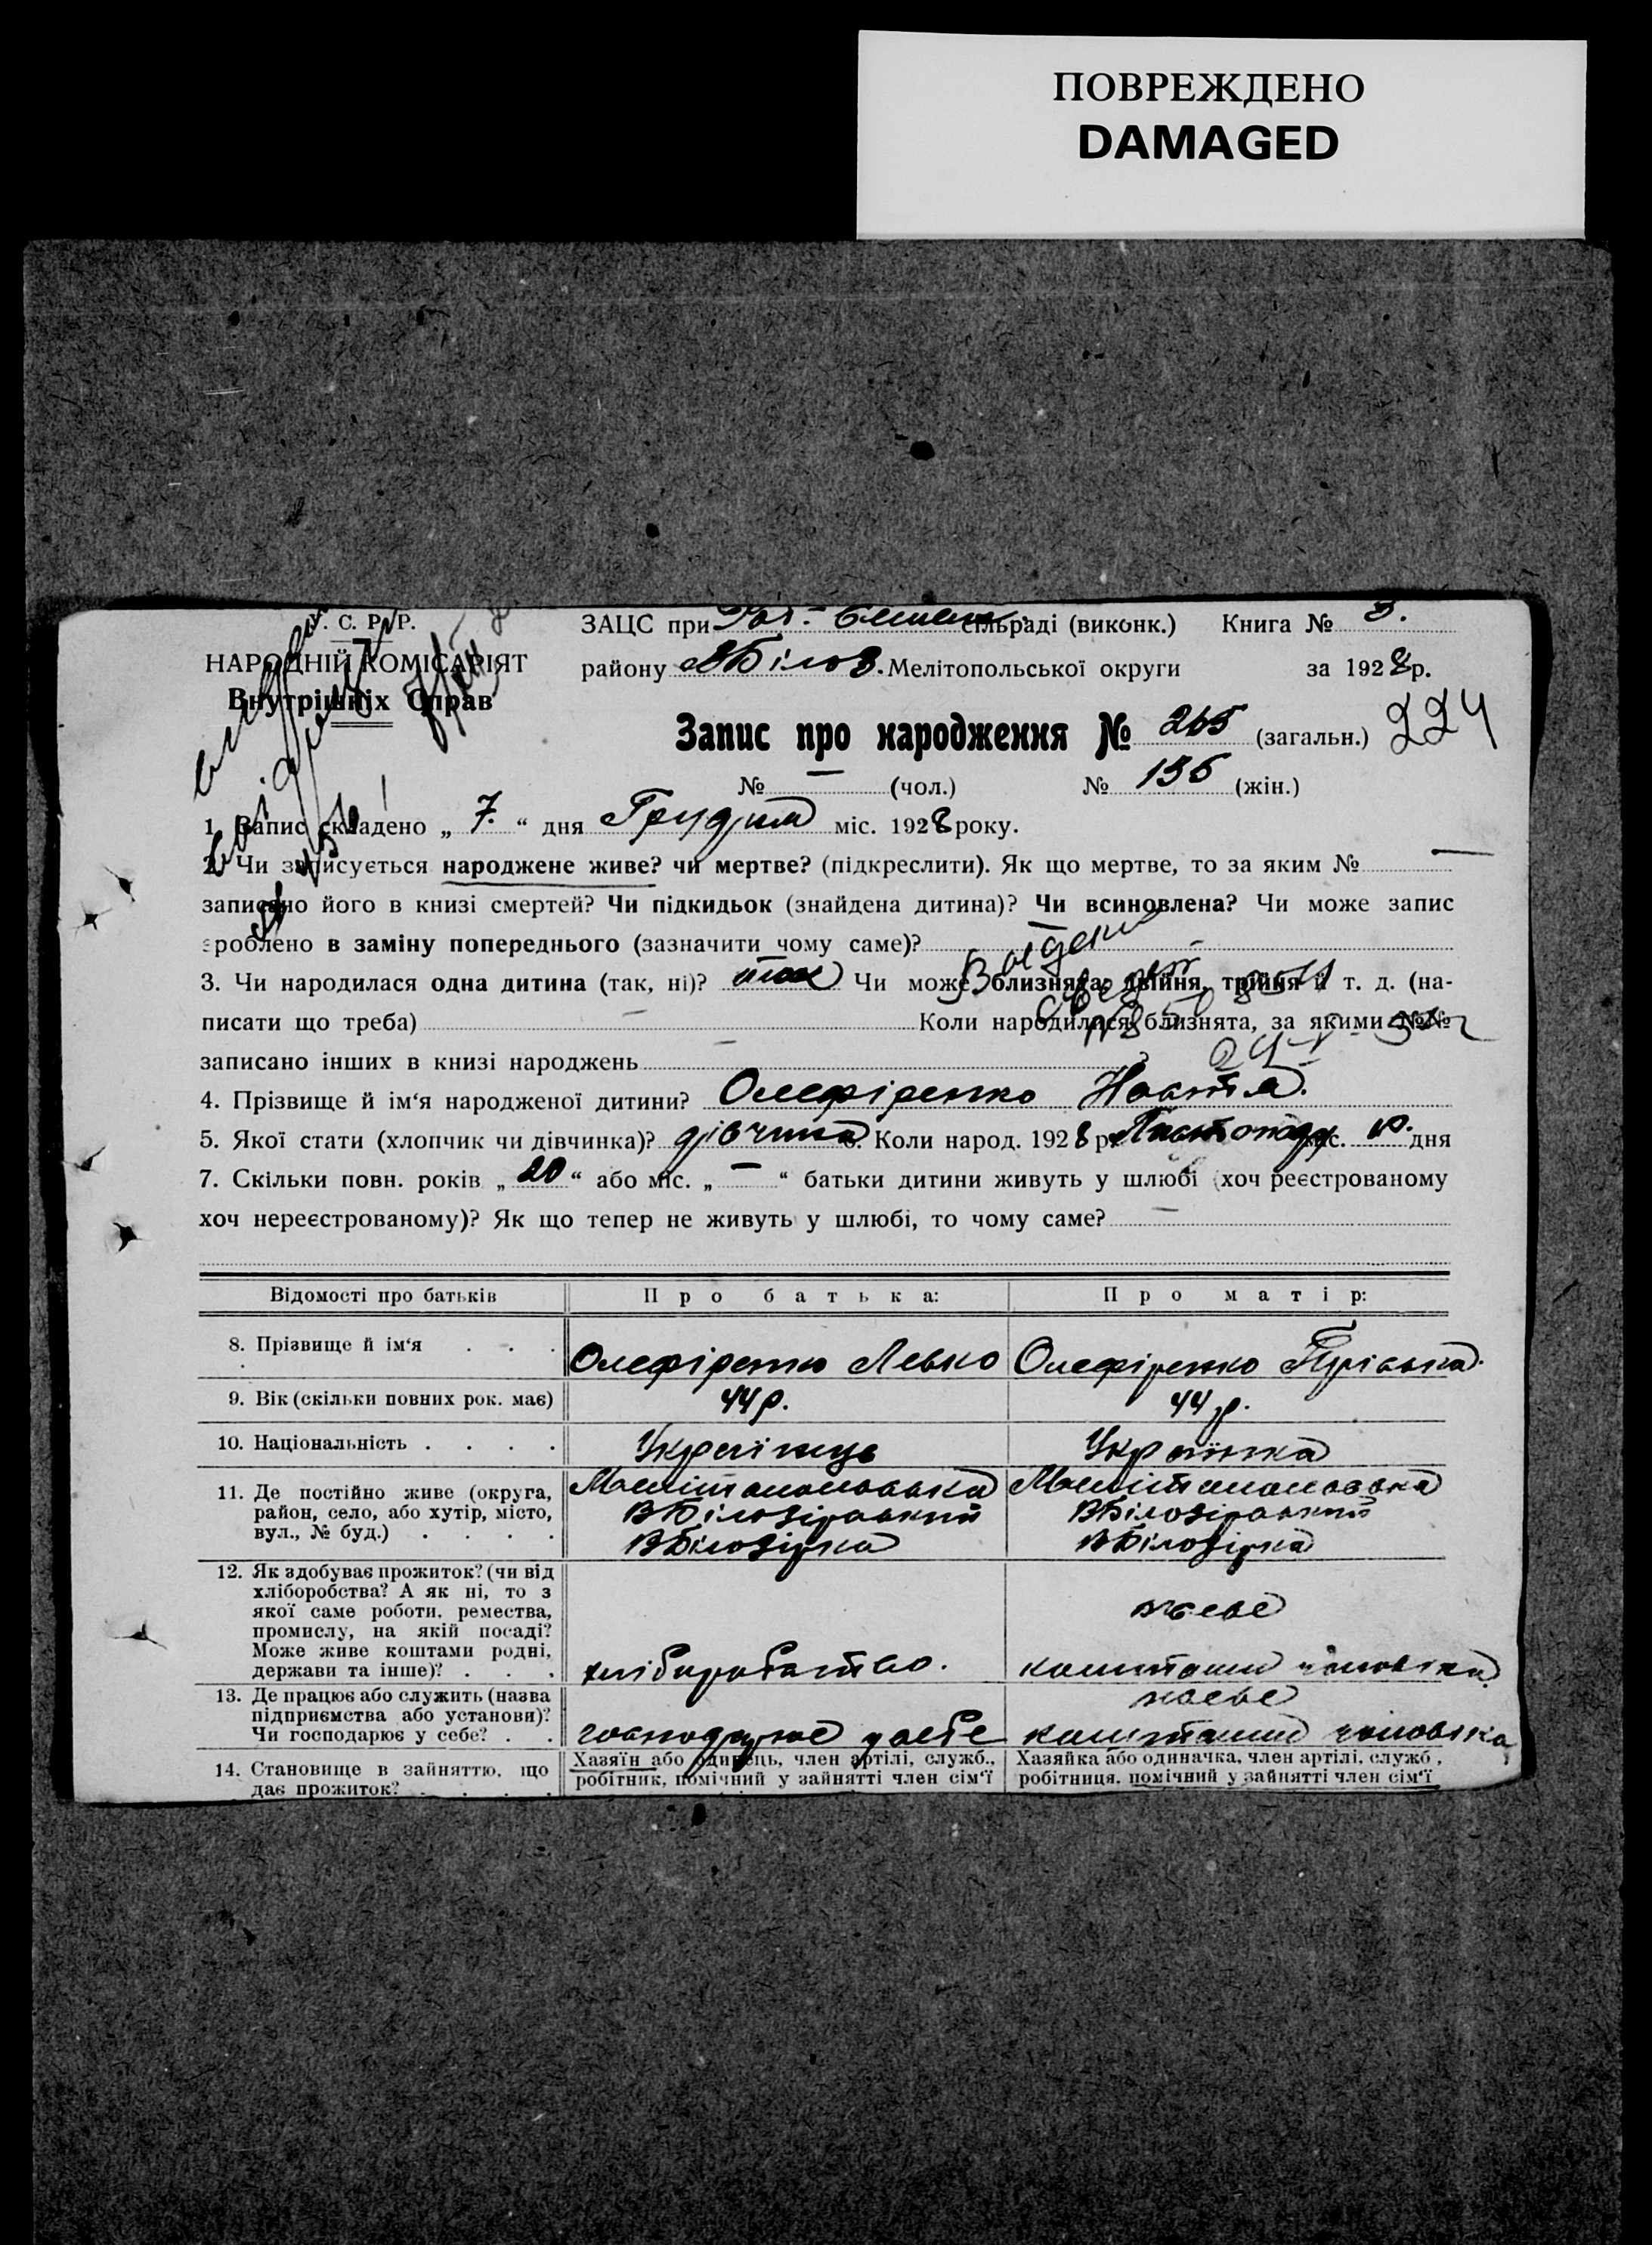 ПОВРЕЖДЕНО
DAMAGED
С. Р. Р.
НАРОДНІЙ КОМІСАРІЯТ
Внутрішніх Справ
ЗАЦС при сільраді (виконк.) Книга № 3.
району ВБілоз. Мелітопольської округи за 1928 р.
Запис про народження № 265 (загальн.) 224
№ — (чол.) № 136 (жін.)
1. Запис складено „ 7. “ дня Грудня міс. 1928 року.
2. Чи записується народжене живе? чи мертве? (підкреслити). Як що мертве, то за яким № —
записано його в книзі смертей? Чи підкидьок (знайдена дитина)? Чи всиновлена? Чи може запис
зроблено в заміну попереднього (зазначити чому саме)? —
3. Чи народилася одна дитина (так, ні)? так Чи може близнята, двійня, трійня й т. д. (на-
писати що треба) — Коли народилися близнята, за якими №№
записано інших в книзі народжень —
4. Прізвище й ім‘я народженої дитини? Олефіренко Настя.
5. Якої стати (хлопчик чи дівчинка)? дівчина 6. Коли народ. 1928 р. Листопада міс. дня
7. Скільки повн. років „ 20 “ або міс. „ — “ батьки дитини живуть у шлюбі (хоч реєстрованому
хоч нереєстрованому)? Як що тепер не живуть у шлюбі, то чому саме? —
Відомості про батьків Про батька: Про матір:
8. Прізвище й ім‘я . . . Олефіренко Левко Олефіренко Пріська.
9. Вік (скільки повних рок. має) 44 р. 44 р.
10. Національність . . . . Українець Українка
11. Де постійно живе (округа, Мелітопольська Мелітопольська
район, село, або хутір, місто, ВБілозірський ВБілозірський
вул., № буд.) . . . . ВБілозірка ВБілозірка
12. Як здобуває прожиток? (чи від
хліборобства? А як ні, то з
якої саме роботи, ремества, живе
промислу, на якій посаді?
Може живе коштами родні,
держави та інше)? . . . хліборобство. коштами чоловіка
13. Де працює або служить (назва живе
підприємства або установи)?
Чи господарює у себе? . . господарює у себе коштами чоловіка
14. Становище в зайняттю, що Хазяїн або одинець, член артілі, служб., Хазяйка або одиначка, член артілі, служб.,
дає прожиток? . . . . робітник, помічний у зайнятті член сім‘ї робітниця, помічний у зайнятті член сім‘ї